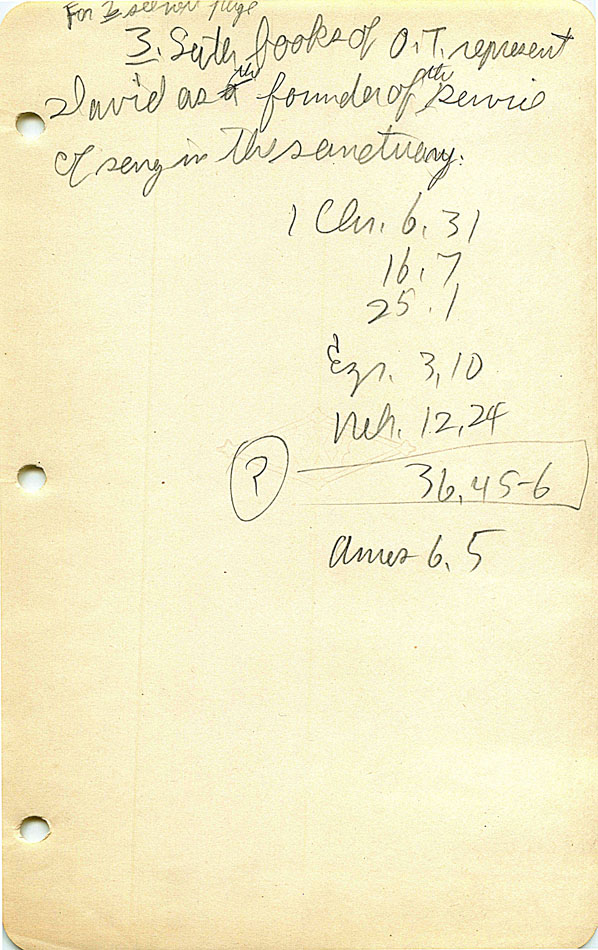 For 2 see next page
3. Later books of O.T. represent
David as the founder of the service
of song in the sanctuary.
1 Chr. 6, 31
16, 7
25. 1
Ezr. 3, 10
Neh. 12, 24
? 36, 45-6
Amos 6, 5